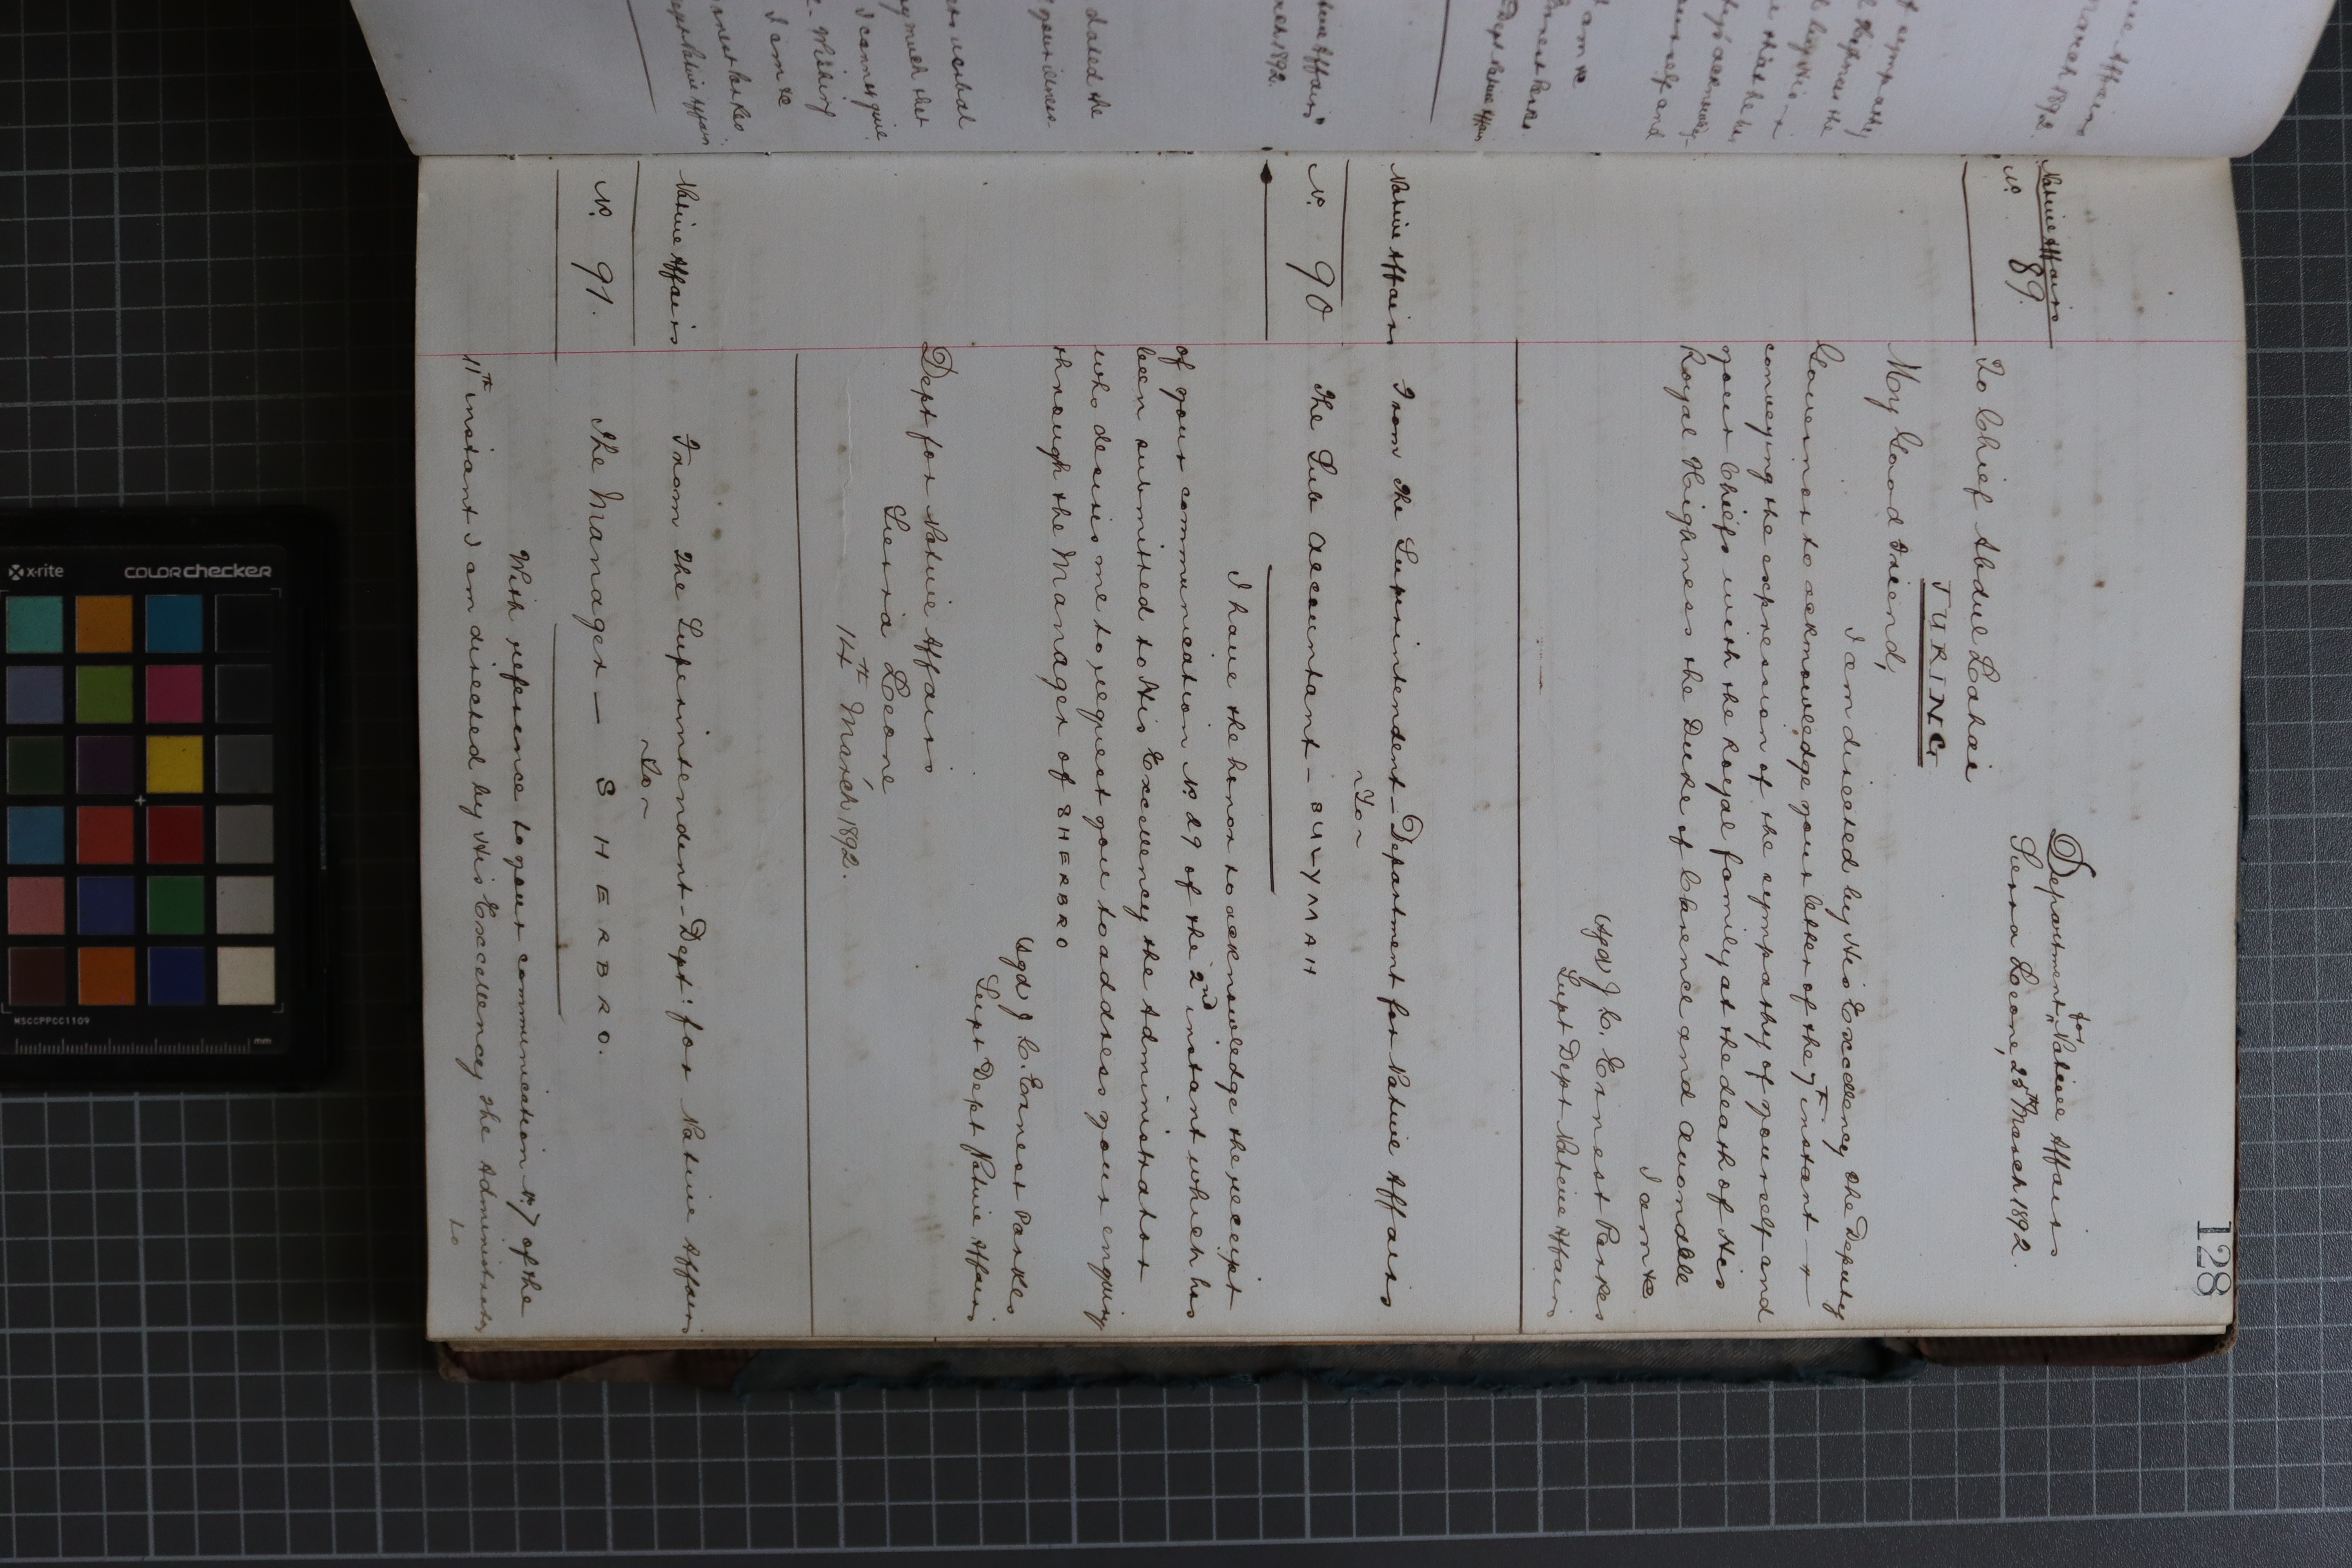 128
Native Affairs
Nº 89.
Department for Native Affairs
Sierra Leone, 25th March 1892.
To Chief Abdul Lahai
FURING
My Good Friend,
I am directed by His Excellency the Deputy
Governor to acknowledge your letter of the 7th instant
conveying the expression of the sympathy of yourself and
your Chiefs with the Royal family at the death of His
Royal Highness the Duke of Clarence and Avondale
I am &c
Sgd J C. Ernest Parkes
Supt Dept Native Affairs
Native Affairs
Nº 90
From The Superintendent - Department for Native Affairs
~To~
The Sub Accountant - BULLYMAH
I have the honor to acknowledge the receipt
of your communication Nº 29 of the 2nd instant which has
been submitted to His Excellency the Administrator
who desires me to request you to address your enquiry
through the Manager of SHERBRO
Sgd J C. Ernest Parkes
Supt Dept Native Affairs
Dept for Native Affairs
Sierra Leone
14th March 1892.
Native Affairs
Nº 91.
From The Superintendent - Dept: for Native Affairs
~To~
The Manager — SHERBRO.
With reference to your communication Nº 7 of the
11th instant I am directed by His Excellency the Administrator
to
Native Affairs
March 1892.
t sympathy
Royal Highness the
yourself and
I am &c
Ernest Parkes
Dept Native Affairs
Native Affairs
March 1892.
dated the
your illness
much that
I cannot give
Wishing
I am &c
Ernest Parkes
Dept Native Affairs
x-rite
colorchecker
MSCCPPCC1109
mm